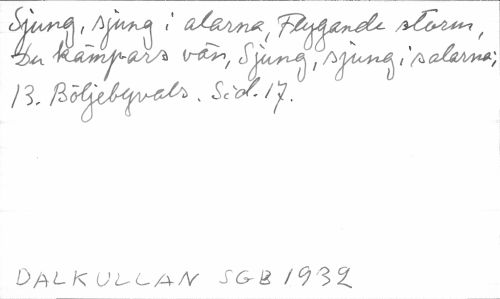 Sjung, sjung i alarna, Flygande storm,
Du kämpars vän, Sjung, sjung i salarna;
13. Böljebyvals. Sid. 17.
DALKULLAN SGB 1932